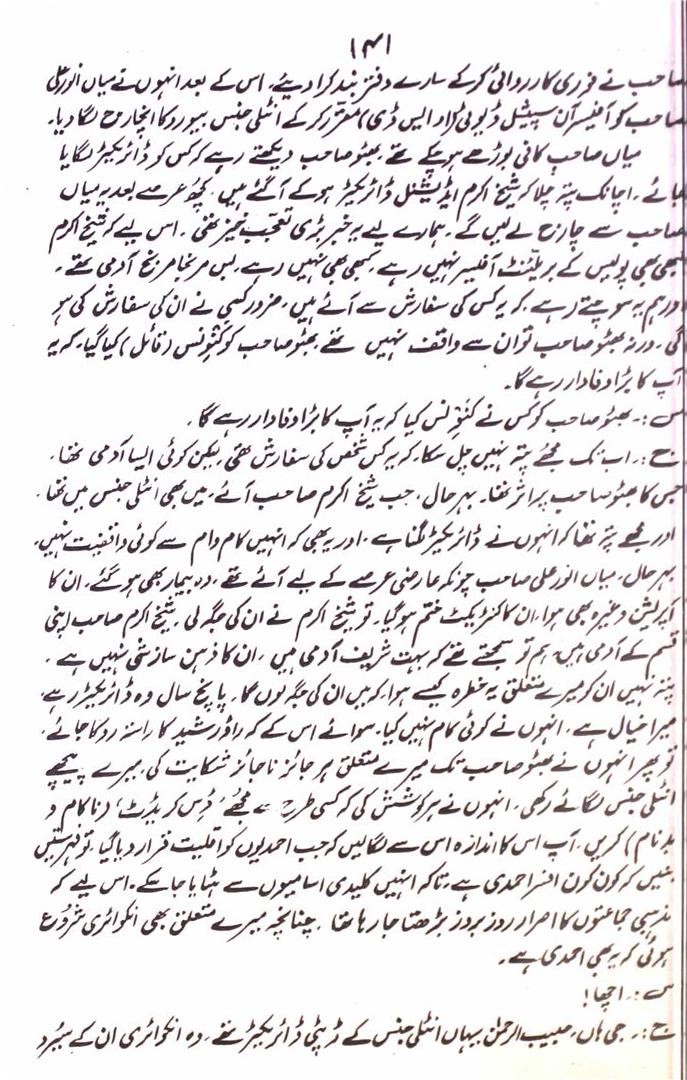 ۱۴۱
صاحب نے فوری کارروائی کر کے سارے دفتر بند کرا دیئے، اس کے بعد انہوں نے میاں انور علی
صاحب کو آفیسر آن سپیشل ڈیوٹی (او ایس ڈی) مقرر کر کے انٹیلی جنس بیورو کا انچارج لگا دیا۔
میاں صاحب کافی بوڑھے ہو چکے تھے۔ بھٹو صاحب دیکھتے رہے کہ کس کو ڈائریکٹر لگایا
جائے۔ اچانک پتہ چلا کہ شیخ اکرم ایڈیشنل ڈائریکٹر ہو کے آ گئے ہیں۔ کچھ عرصے بعد یہ میاں
صاحب سے چارج لے لیں گے۔ ہمارے لیے یہ خبر بڑی تعجب خیز تھی۔ اس لیے کہ شیخ اکرم
کبھی بھی پولیس کے بریلئنٹ آفیسر نہیں رہے۔ کبھی بھی نہیں رہے۔ بس مرنجا مرنج آدمی تھے۔
اور ہم یہ سوچتے رہے کہ یہ کس کی سفارش سے آئے ہیں۔ ضرور کسی نے ان کی سفارش کی ہو
گی۔ ورنہ بھٹو صاحب تو ان سے واقف نہیں تھے۔ بھٹو صاحب کو کنونس (قائل) کیا گیا۔ کہ یہ
آپ کا بڑا وفادار رہے گا۔
س:۔ بھٹو صاحب کو کس نے کنونس کیا کہ یہ آپ کا بڑا وفادار رہے گا۔
ج:۔ اب تک مجھے پتہ نہیں چل سکا۔ کہ یہ کس شخص کی سفارش تھی۔ لیکن کوئی ایسا آدمی تھا۔
جس کا بھٹو صاحب پر اثر تھا۔ بہر حال، جب شیخ اکرم صاحب آئے۔ میں بھی انٹیلی جنس میں تھا۔
اور مجھے پتہ تھا کہ انہوں نے ڈائریکٹر لگنا ہے۔ اور یہ بھی کہ انہیں کام وام سے کوئی واقفیت نہیں۔
بہر حال، میاں انور علی صاحب چونکہ عارضی عرصے کے لیے آئے تھے۔ وہ بیمار بھی ہو گئے۔ ان کا
آپریشن وغیرہ بھی ہوا۔ ان کا کنٹریکٹ ختم ہو گیا۔ تو شیخ اکرم نے ان کی جگہ لی۔ شیخ اکرم صاحب اپنی
قسم کے آدمی ہیں۔ ہم تو سمجھتے تھے کہ بہت شریف آدمی ہیں۔ ان کا ذہن سازشی نہیں ہے۔
پتہ نہیں ان کو میرے متعلق یہ خطرہ کیسے ہوا۔ کہ میں ان کی جگہ لوں گا۔ پانچ سال وہ ڈائریکٹر رہے۔
میرا خیال ہے۔ انہوں نے کوئی کام نہیں کیا۔ سوائے اس کے کہ راؤ رشید کا راستہ روکا جائے۔
تو پھر انہوں نے بھٹو صاحب تک میرے متعلق ہر جائز ناجائز شکایت کی۔ میرے پیچھے
انٹیلی جنس لگائے رکھی۔ انہوں نے ہر کوشش کی کہ کسی طرح سے مجھے ’ڈس کریڈٹ‘ (ناکام و
بدنام) کریں۔ آپ اس کا اندازہ اس سے لگا لیں کہ جب احمدیوں کو اقلیت قرار دیا گیا۔ تو فہرستیں
بنیں کہ کون کون افسر احمدی ہے۔ تاکہ انہیں کلیدی اسامیوں سے ہٹایا جا سکے۔ اس لیے کہ
مذہبی جماعتوں کا اصرار روز بروز بڑھتا جا رہا تھا۔ چنانچہ میرے متعلق بھی انکوائری شروع
ہوئی کہ یہ بھی احمدی ہے۔
س:۔ اچھا!
ج:۔ جی ہاں۔ حبیب الرحمٰن یہاں انٹیلی جنس کے ڈپٹی ڈائریکٹر تھے۔ وہ انکوائری ان کے سپرد